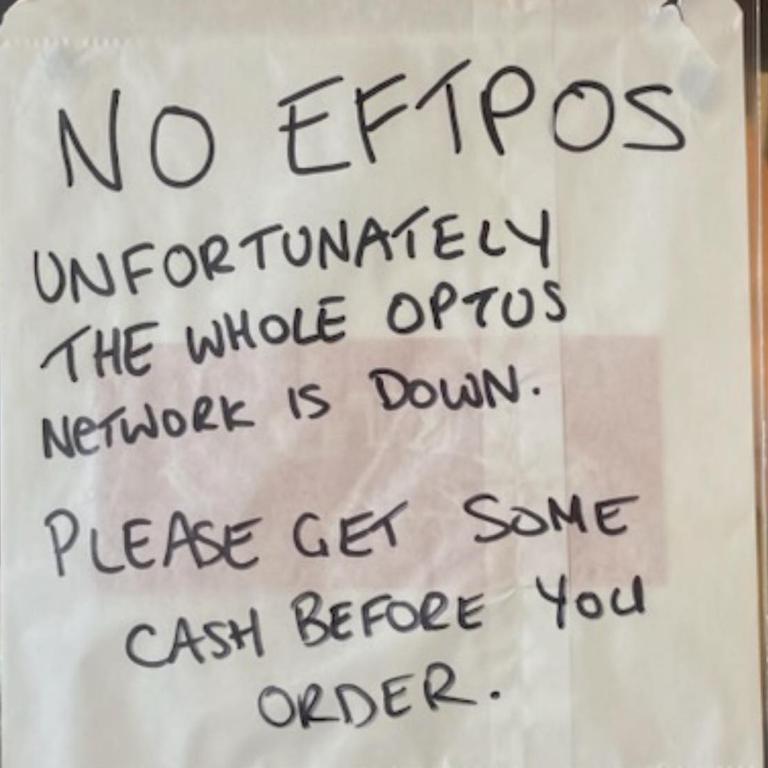 NO EFTPOS
UNFORTUNATELY
THE WHOLE OPTUS
NeTWORK IS DOWN.
PLEASE GET SOME
CASH BEFORE YOU
ORDER.